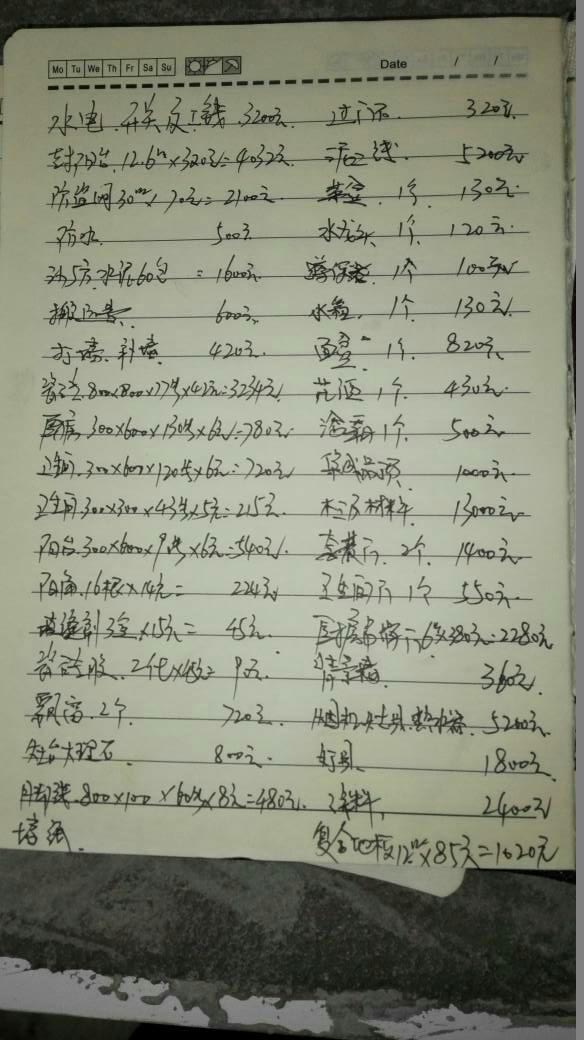 Mo Tu We Th Fr Sa Su Date / /
水电.开关及工钱.3200元. 过门石. 320元.
封阳台.12.6m×320元=4032元 5200元
防盗网30m²/70元=2100元. 1个. 130元.
防水. 500元 水龙头.1个.120元.
水泥60包 =1600元 1个 100元
600元. 水 1个. 130元.
打墙.补墙. 420元. 面盆 1个. 820元.
瓷砖.800×800×77块×42元=3234元 花洒 1个. 430元.
厨房.300×600×130块×6元=780元. 浴霸1个. 500元
卫生间.300×600×120块×6元=720元 集成吊顶 1000元.
卫生间.300×300×43块×5元=215元. 木工及材料. 13000元
阳台.300×600×9块×6元=540元. 套装门.2个.1400元.
阳角.16根×14元= 224元 卫生间门1个 550元.
填缝剂3盒×15元= 45元. 厨房 6m²×380元=2280元
瓷砖胶. = 9元. 背景墙. 360元.
飘窗.2个. 720元. 烟机.灶具.热水器. 5200元.
灶台大理石. 800元. 灯具. 1800元.
脚线.800×100×60块×8元=480元. 涂料. 2400元
墙纸. 复合地板12m²×85元=1020元